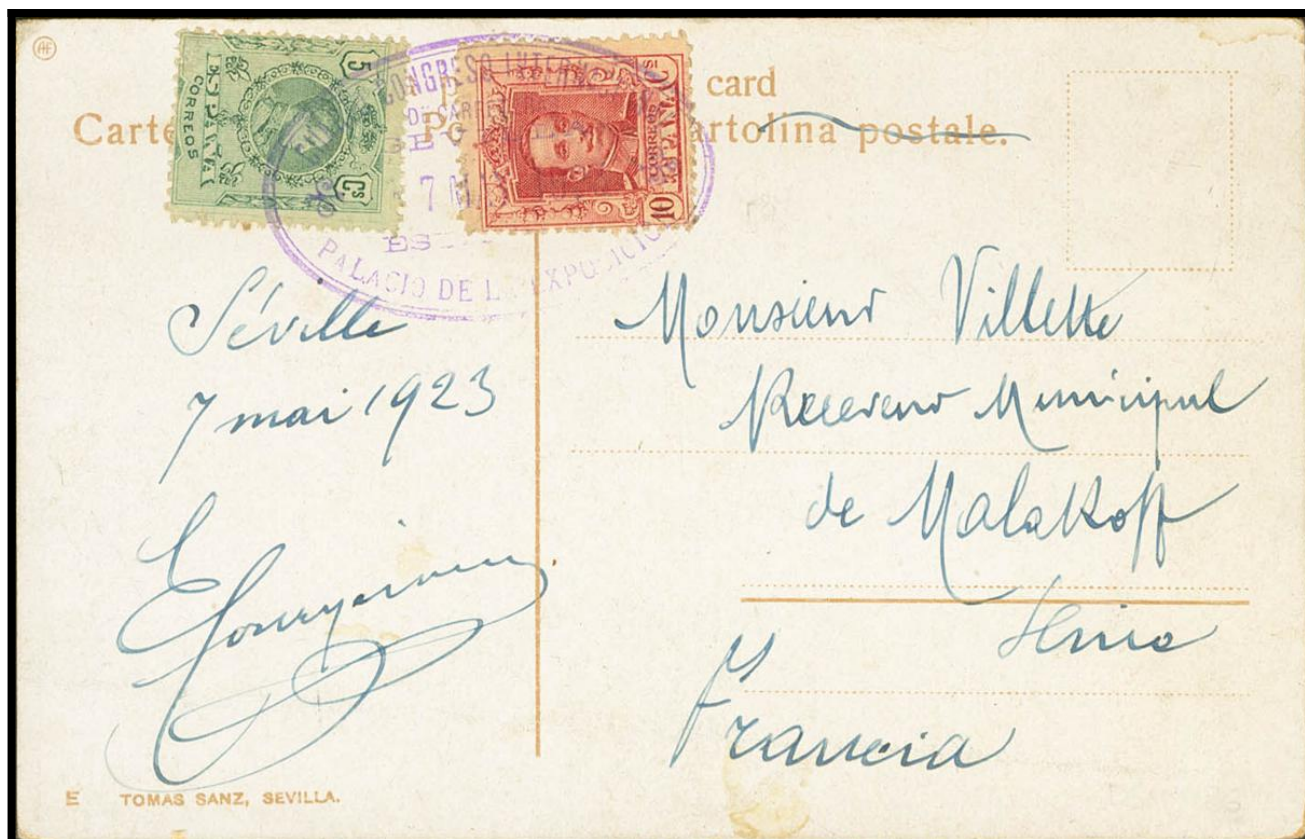 AE
card
Carte Po artolina postale.
5 Cs
ESPAÑA
CORREOS
10 Cs
ESPAÑA
CORREOS
CONGRESO
DE CARRE
7 M
PALACIO DE L EXPOSICIO
Séville
7 mai 1923
Monsieur Villette
Receveur Municipal
de Malakoff
Seine
Francia
E TOMAS SANZ, SEVILLA.